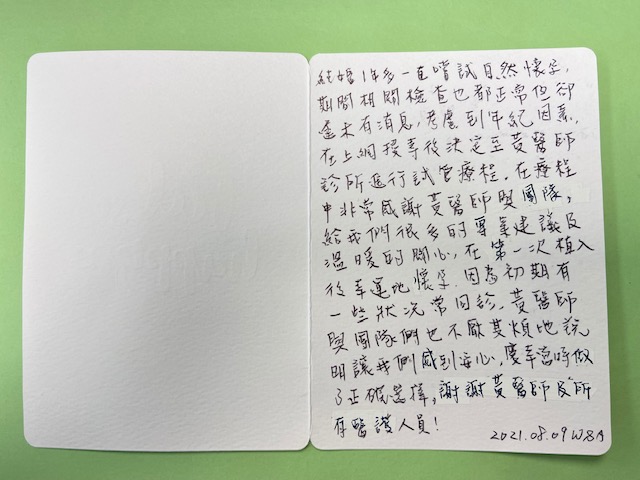 結婚1年多一直嚐試自然懷孕,
期間相關檢查也都正常但卻
還未有消息,考慮到年紀因素,
在上網搜尋後決定至黃醫師
診所進行試管療程,在療程
中非常感謝黃醫師與團隊,
給我們很多的專業建議及
溫暖的關心,在第一次植入
後幸運地懷孕.因為初期有
一些狀況常回診,黃醫師
與團隊們也不厭其煩地說
明讓我們感到安心,慶幸當時做
了正確選擇,謝謝黃醫師及所
有醫護人員!
2021.08.09